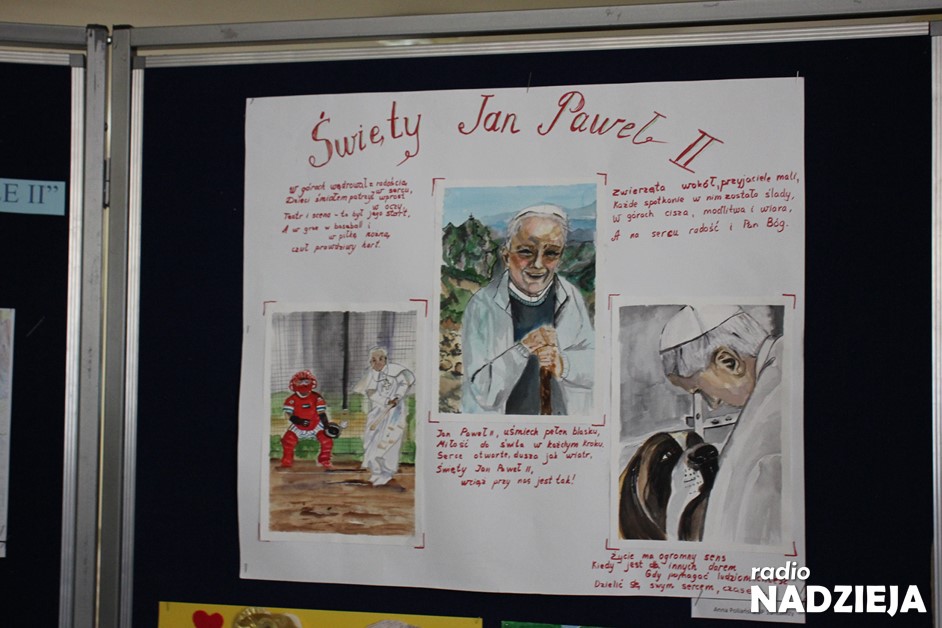 Święty Jan Paweł II
W górach wędrował z radością
w sercu,
Dzieci śmiałem patrzył wprost
w oczy,
Teatr i scena - to był jego start,
A w grze w baseball i
w piłkę nożną,
czuł prawdziwy hart.
Zwierzęta wokół, przyjaciele mali,
Każde spotkanie w nim zostało ślady,
W górach cisza, modlitwa i wiara,
A na sercu radość i Pan Bóg.
Jan Paweł II, uśmiech pełen blasku,
Miłość do świata w każdym kroku.
Serce otwarte, dusza jak wiatr,
Święty Jan Paweł II,
wciąż przy nas jest tak!
Życie ma ogromny sens
Kiedy jest dla innych darem
Gdy pomagać ludziom
Dzielić się swym sercem,
E II”
Anna
radio
NADZIEJA